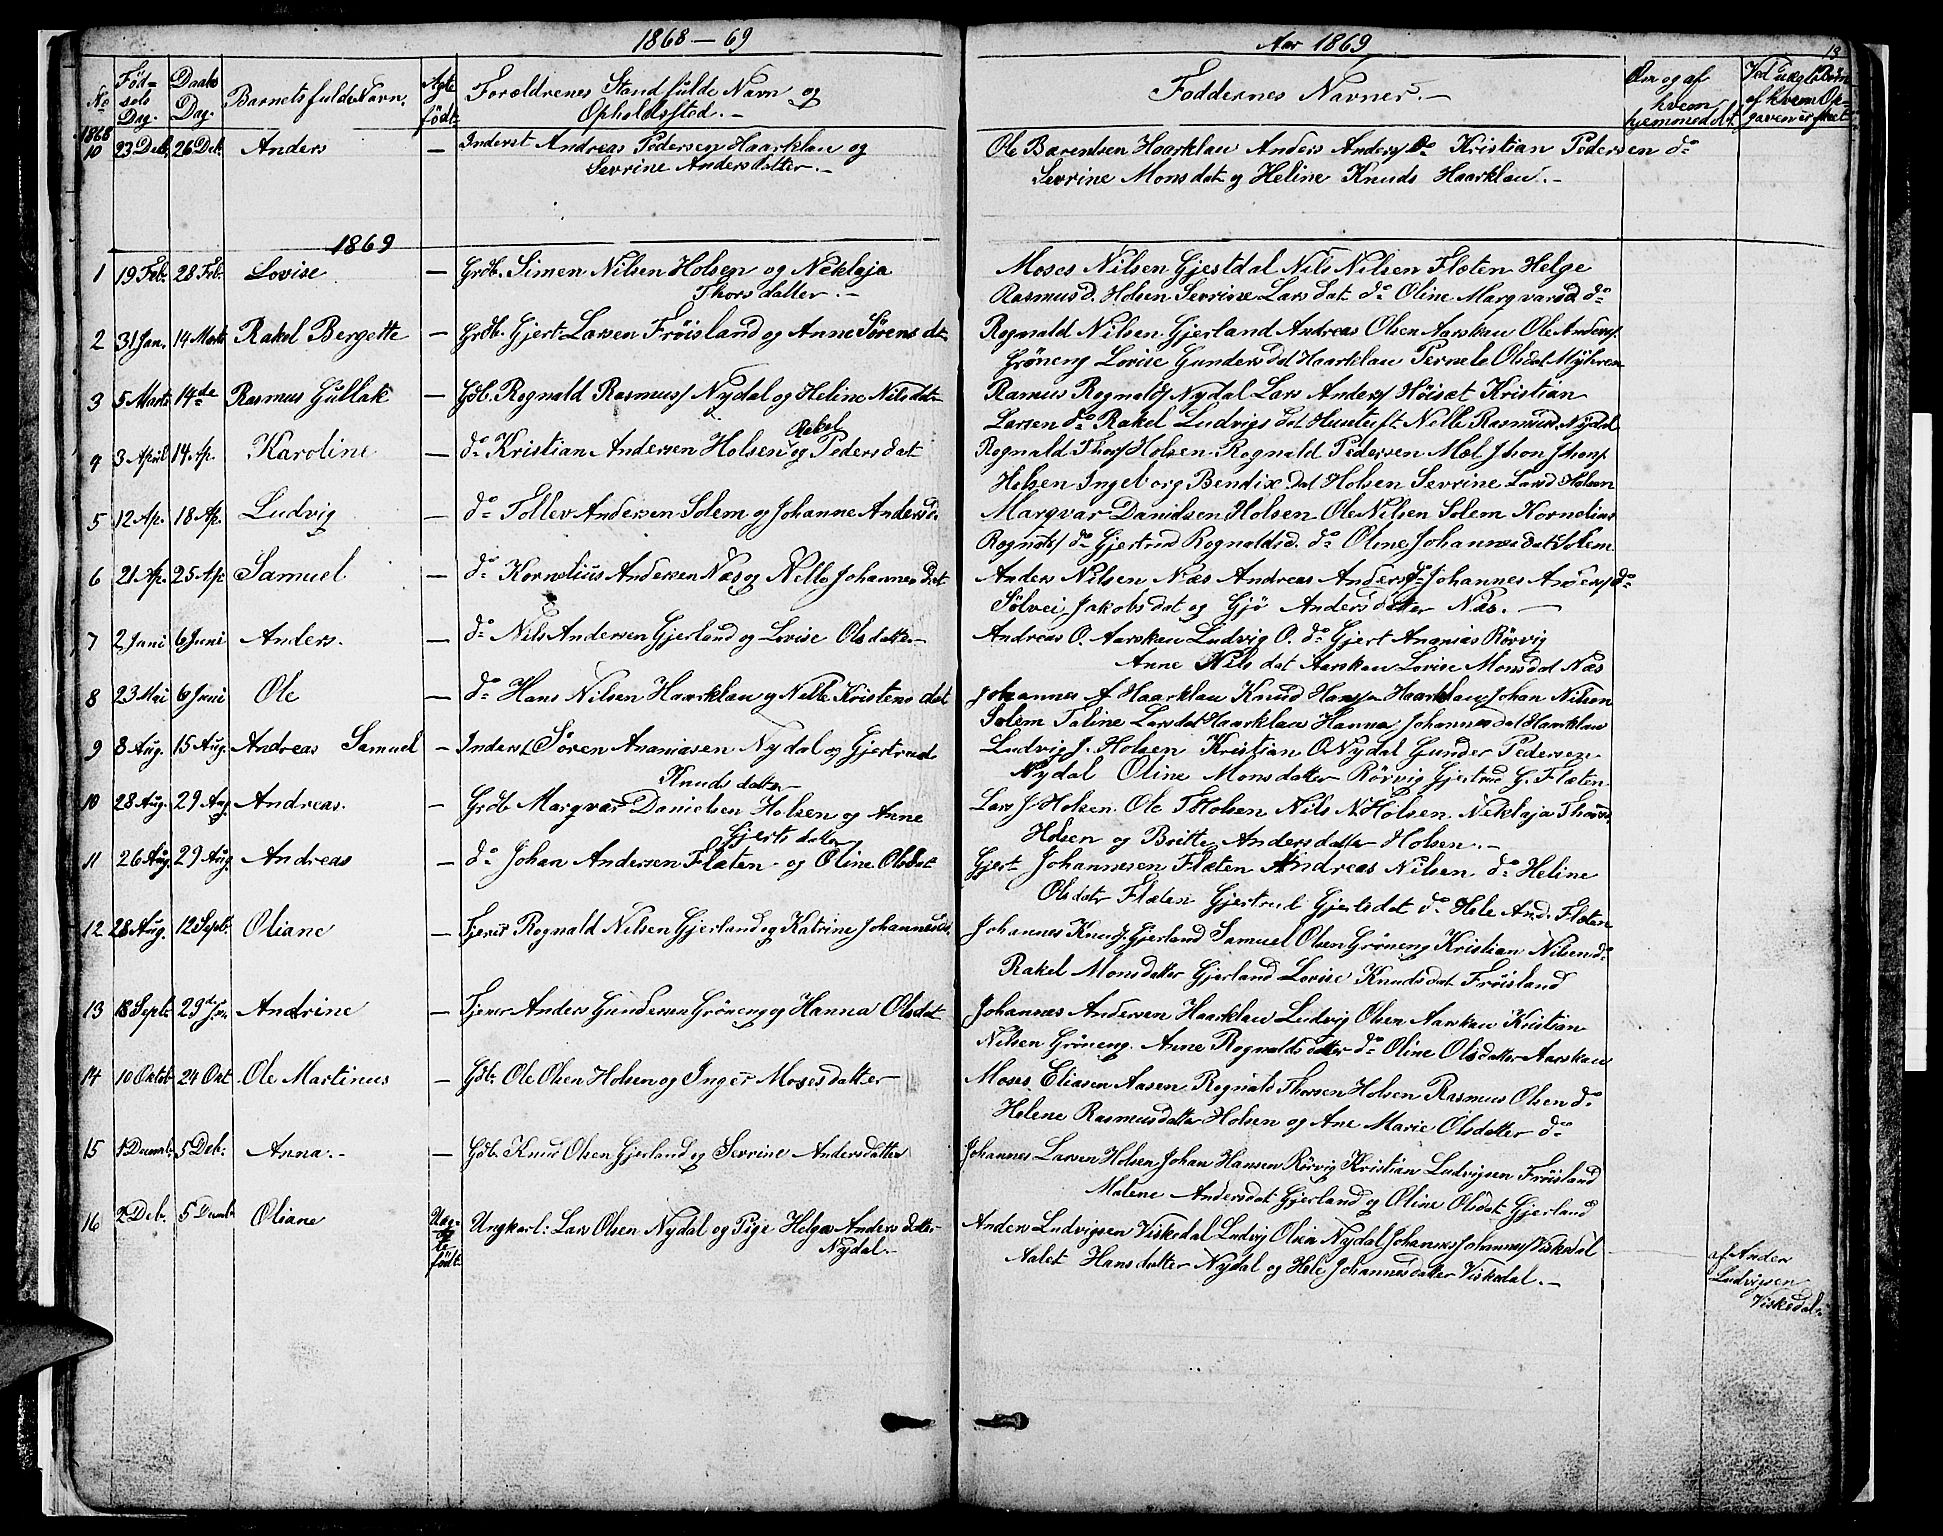 1868 — 69
No
Fød-
sels
Dag.
Daabs
Dag.
Barnets fulde Navn.
Ægte
født.
Forældrenes Stand fulde Navn og
Opholdssted. —
1868
10 23 Deb. 26 Deb. Anders — Inderst Andreas Pedersen Haarklau og
Sevrine Andersdatter. —
1869
1 19 Feb. 28 Feb. Lovise — Grdb. Simen Nilsen Holsen og Neklaja
Thorsdatter. —
2 31 Jan. 14 Marts Rakel Bergette — Grdb. Gjert Larsen Frøisland og Anne Sørens dt.
3 5 Marts 14de Rasmus Gullak — Gdb. Rognald Rasmuss Nydal og Heline Nilsdat
Rakel
4 3 April 14 Ap. Karoline — do Kristian Andersen Holsen og Pedersdat
5 12 Ap. 18 Ap. Ludvig — do Tollev Andersen Solem og Johanne Andersd.
6 21 Ap. 25 Ap Samuel — do Kornelius Andersen Næs og Nille Johannesdat
7 2 Juni 6 Juni Anders. — do Nils Andersen Gjerland og Lovise Olsdatter
8 23 Mai 6 Juni Ole — do Hans Nilsen Haarklau og Nille Kristensdat
9 8 Aug. 15 Aug. Andreas Samuel — Inderst Søren Ananiasen Nydal og Gjertrud
Knudsdatter
10 28 Aug. 29 Aug. Andreas. — Grdb Marqvar Danielsen Holsen og Anne
Gjertsdatter
11 26 Aug. 29 Aug. Andreas — do Johan Andersen Flæten og Oline Olsdat
12 28 Aug. 12 Sept. Oliane — Tjener Rognald Nilsen Gjerland og Katrine Johannesd.
13 18 Sept. 29 d. m. Andrine — Tjener Anders Gundersen Grøneng og Hanna Olsdat
14 10 Oktob. 24 Okt Ole Martinus — Gdb. Ole Olsen Holsen og Inger Mosesdatter
15 1 Decemb. 5 Deb. Anna. — Gdb. Knud Olsen Gjerland og Sevrine Andersdatter
16 2 Deb. 5 Decemb. Oliane Uæg- Ungkarl: Lars Olsen Nydal og Pige Helga Andersdatter
te Nydal. —
født.
Aar 1869
13
Faddernes Navner. —
Om og af
hvem
hjemmedøbt.
Ved uægte Børn
af hvem Op-
gaven er skeet
Ole Barentsen Haarklau Anders Anders do Kristian Pedersen do
Sevrine Monsdat og Heline Knuds Haarklau. —
Moses Nilsen Gjestdal Nils Nilsen Flæten Helge
Rasmusd. Holsen Sevrine Larsdat do Oline Marqvarsd do
Rognald Nilsen Gjerland Andreas Olsen Aarskau Ole Anders.
Grøneng Lovise Gundersdat Haarklau Pernele Olsdat Myhren
Rasmus Rognalds Nydal Lars Anders Høiset Kristian
Larsen do Rakel Ludvigsdat Nille Rasmusd. Nydal
Rognald Thors Holsen Rognald Pedersen Mæl Jhon Jhons
Holsen Ingeborg Bendixdat Holsen Sevrine Larsd Holsen
Marqvar Danielsen Holsen Ole Nilsen Solem Kornelius
Rognals do Gjertrud Rognaldsd. do Oline Johannesdat Solem
Anders Nilsen Næs Andreas Anders do Johannes Anders do
Sølvei Jakobsdat og Gjø Andersdatter Næs. —
Andreas O. Aarskau Ludvig O. do Gjert Ananias Rørvig
Anne Nilsdat Aarskau Lovise Monsdat Næs
Johannes A Haarklau Knud Hansen Haarklau Johan Nilsen
Solem Taline Larsdat Haarklau Hanna Johannesdat Haarklau
Ludvig J. Holsen Kristian O Nydal Gunder Pedersen
Nydal Oline Monsdatter Rørvig Gjertrud G. Flæten
Lars J Holsen. Ole T Holsen Nils N Holsen. Neklaja Thorsd.
Holsen og Britte Andersdatter Holsen. —
Gjert Johannesen Flæten Andreas Nilsen do Heline
Olsdatr Flæten Gjertrud Gjertsdat do Hele And. Flæten
Johannes Knuds Gjerland Samuel Olsen Grøneng Kristian Nilsen do
Rakel Monsdatter Gjerland Lovise Knudsdat Frøisland
Johannes Andersen Haarklau Ludvig Olsen Aarskau Kristian
Nilsen Grøneng. Anne Rognaldsdatter do Oline Olsdatter Aarskau
Moses Eliasen Aasen Rognald Thorsen Holsen Rasmus Olsen do
Helene Rasmusdatter Holsen og Ane Marie Olsdatter do
Johannes Larsen Holsen Johan Hansen Rørvig Kristian Ludvigsen Frøisland
Malene Andersdat Gjerland og Oline Olsdat Gjerland
Anders Ludvigsen Viskedal Ludvig Olsen Nydal Johannes Johannes Viskedal
Aalet Hansdatter Nydal og Hele Johannesdatter Viskedal. —
af Anders
Ludvigsen
Viskedal